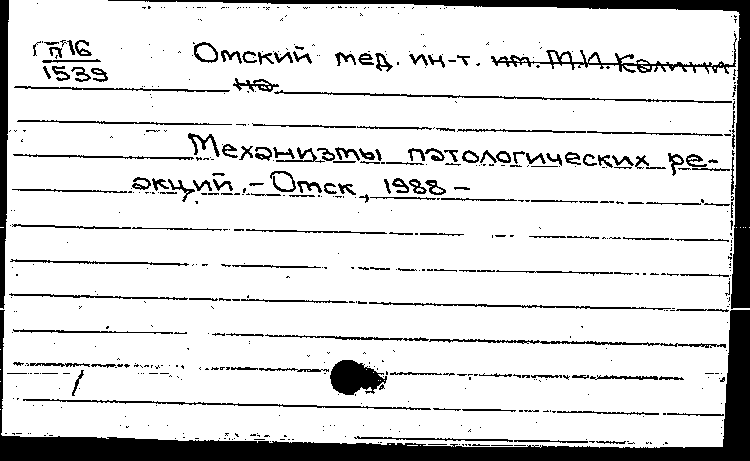 П16 Омский мед. ин-т. им. М.И. Калини
1539 на
Механизмы патологических ре-
акций. – Омск, 1988 –